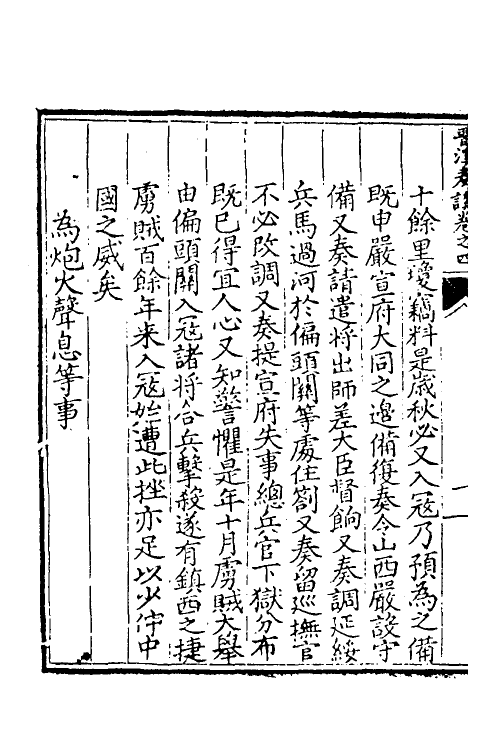 晉溪奏議卷之四
十餘里瓊竊料是歲秋必又入冦乃預為之備
既申嚴宣府大同之邊備復奏令山西嚴設守
備又奏請遣將出師差大臣督餉又奏調延綏
兵馬過河於偏頭關等處住劄又奏留巡撫官
不必改調又奏提宣府失事總兵官下獄分布
既已得宜人心又知警懼是年十月虜賊大舉
由偏頭關入冦諸將合兵擊殺遂有鎮西之捷
虜賊百餘年来入冦始遭此挫亦足以少伸中
國之威矣
為炮火聲息等事